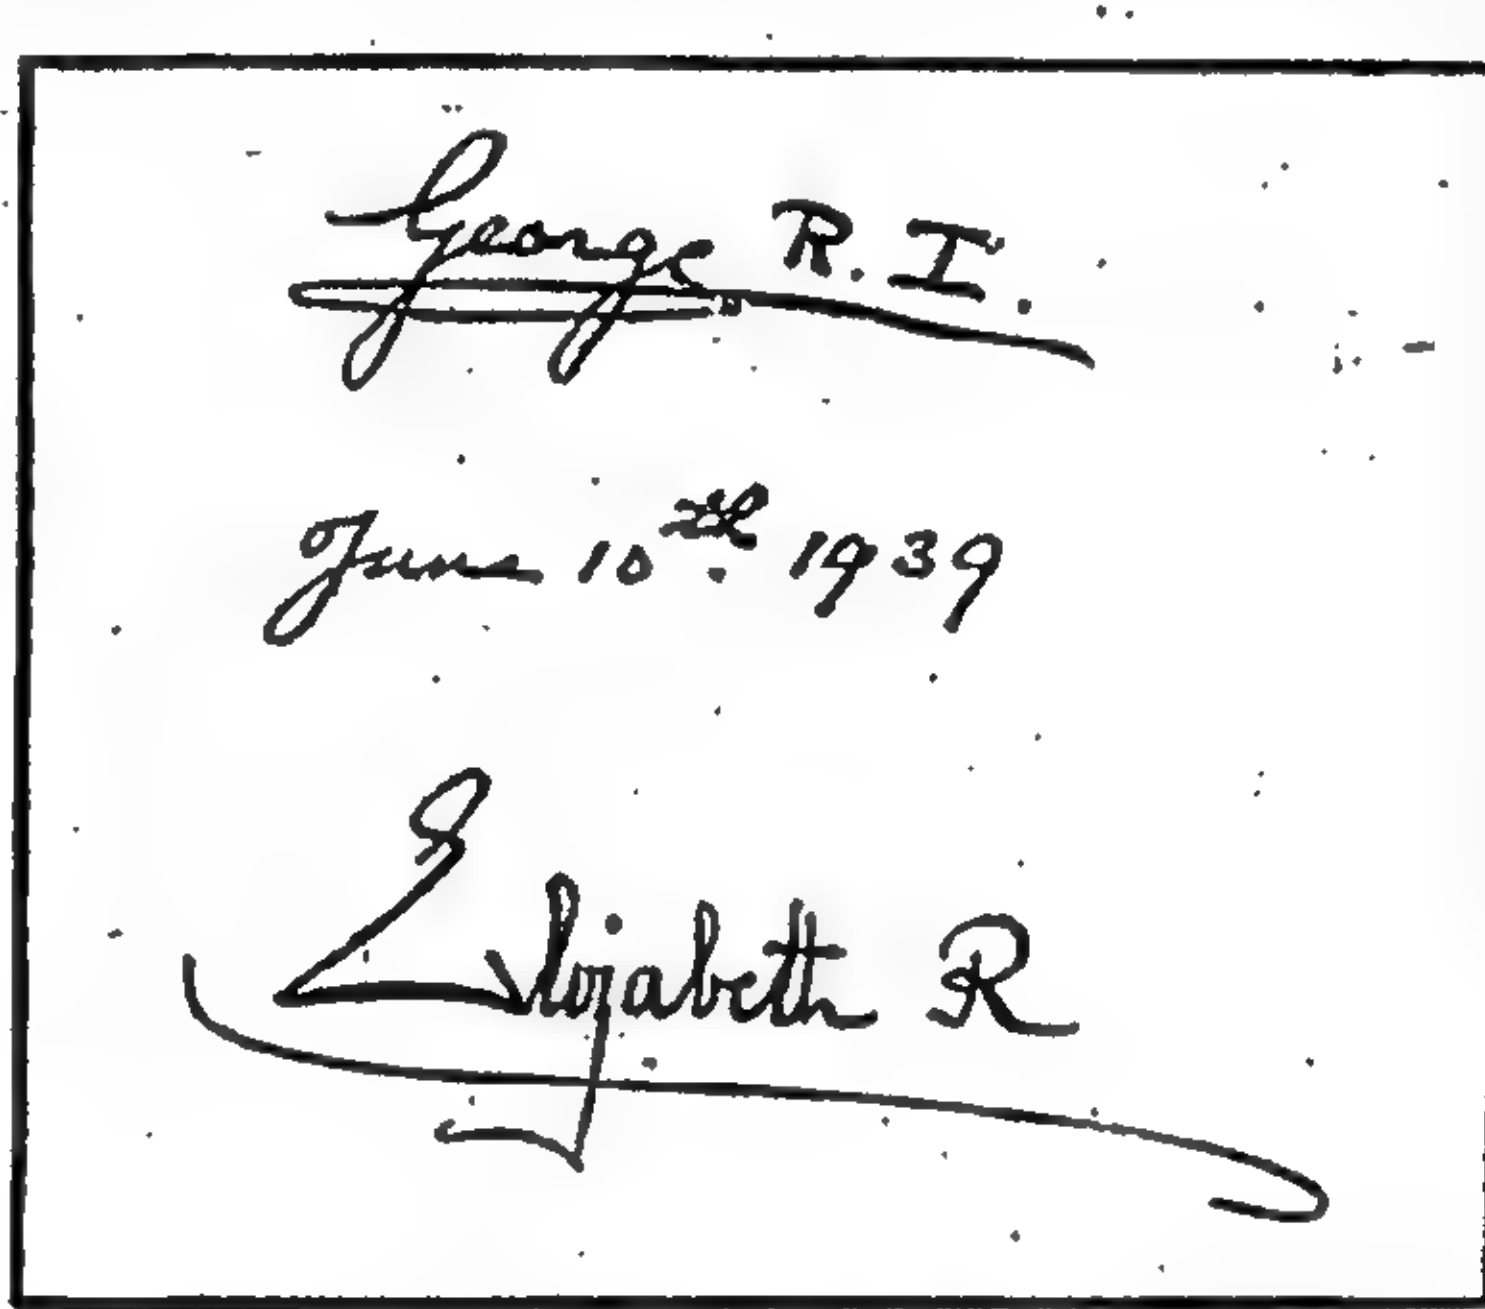 George R. I.
June 10th 1939
Elizabeth R